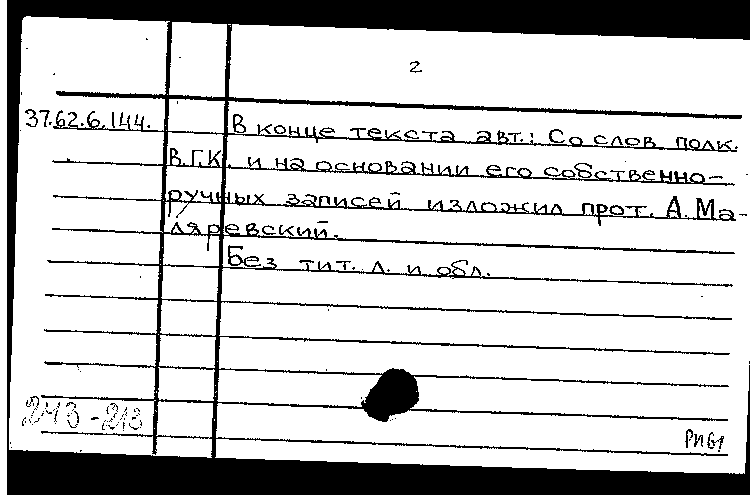 2
37.62.6.144.
В конце текста авт.: Со слов полк.
В.Г.К. и на основании его собственно-
ручных записей изложил прот. А. Ма-
ляревский.
Без тит. л. и обл.
243-213
РП61